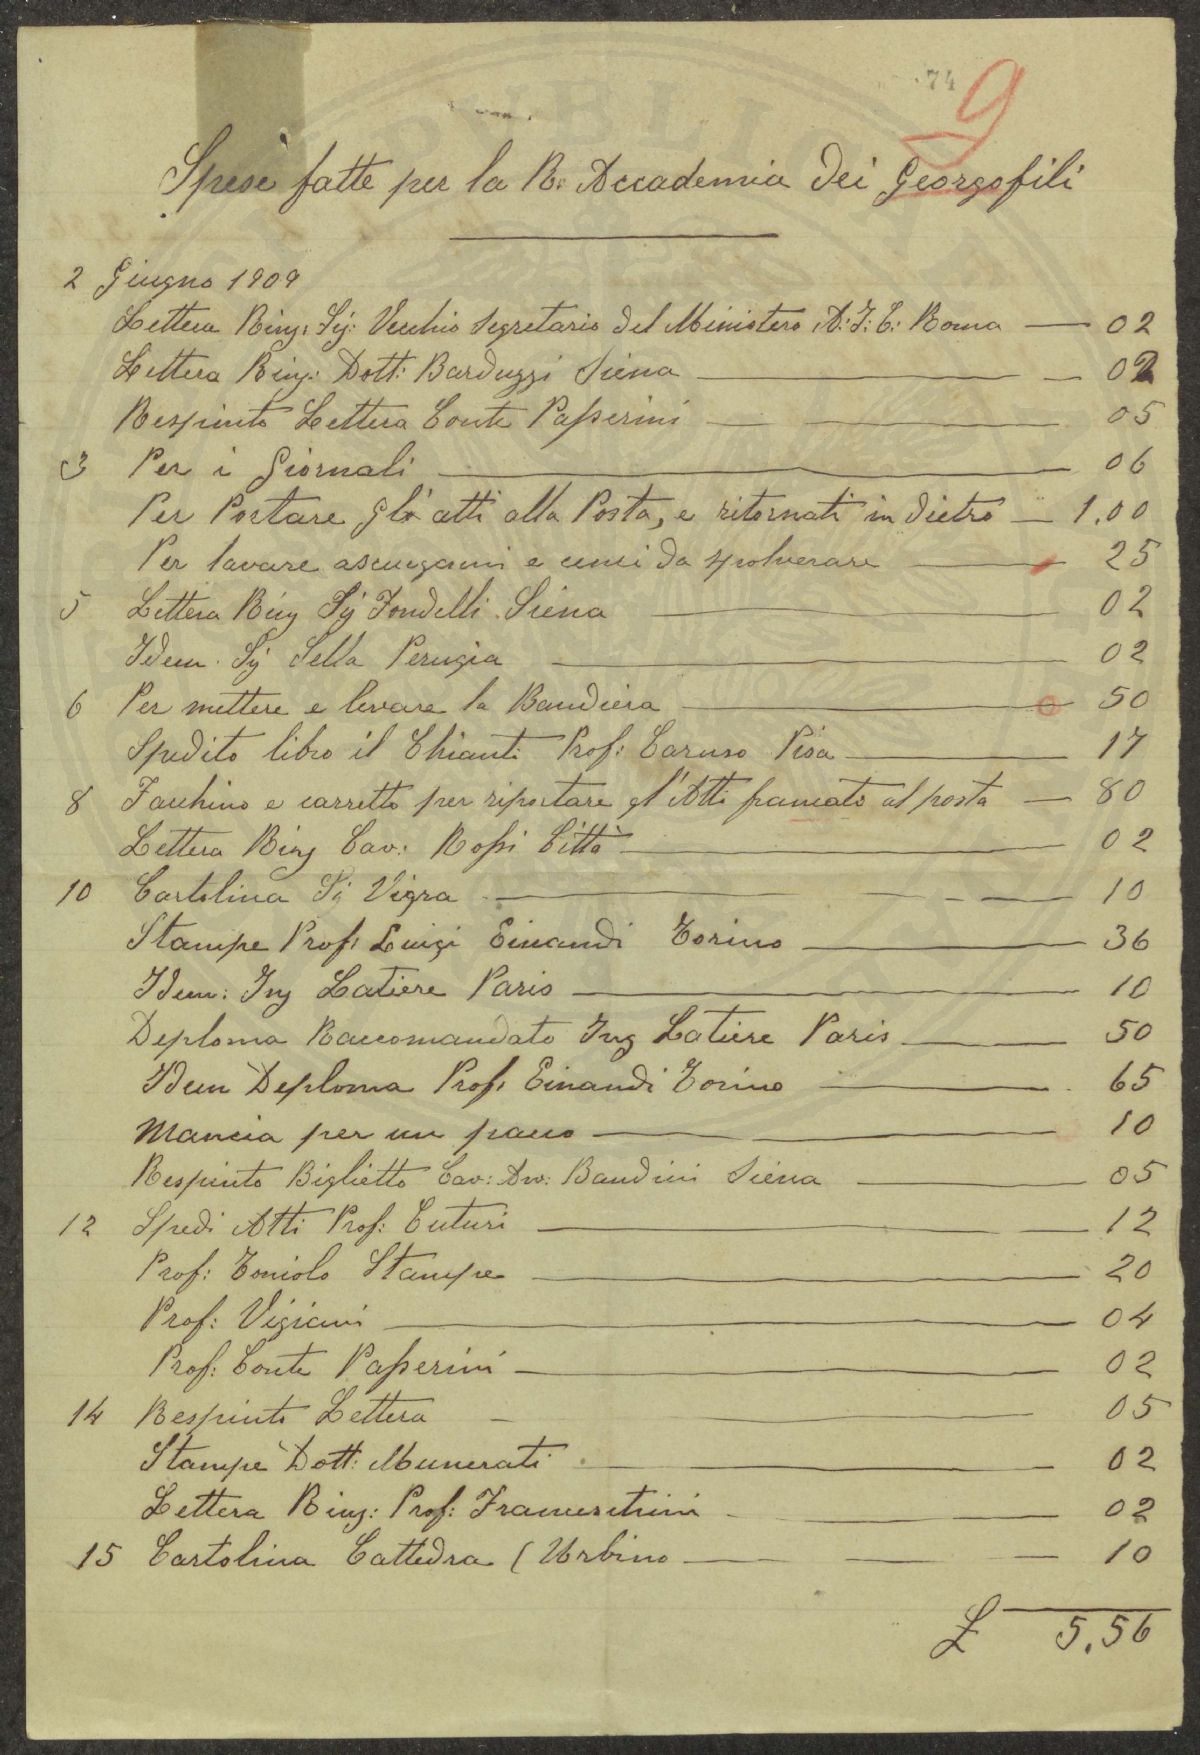 74
9
Spese fatte per la R. Accademia dei Georgofili
2 Giugno 1909
Lettera Ring: Sg: Vecchio Segretario del Ministero A: I: C: Roma — 02
Lettera Ring: Dott: Barduzzi Siena — 02
Respinto Lettera Conte Passerini — 05
3 Per i Giornali — 06
Per Portare gli atti alla Posta, e ritornati in dietro — 1.00
Per lavare asciugami e cenci da spolverare — 25
5 Lettera Ring Sg Fondelli Siena — 02
Idem. Sg Sella Perugia — 02
6 Per mettere e levare la Bandiera — 50
Spedito libro il Chianti Prof: Caruso Pisa — 17
8 Facchino e carretto per riportare gl'Atti francato al posta — 80
Lettera Ring Cav: Rossi Città — 02
10 Cartolina Sg Vigra — 10
Stampe Prof: Luigi Einandi Torino — 36
Idem: Ing Latiere Paris — 10
Deploma Raccomandato Ing Latiere Paris — 50
Idem Deploma Prof: Einandi Torino — 65
Mancia per un pacco — 10
Respinto Biglietto Cav: Avv: Bandini Siena — 05
12 Spedi Atti Prof: Cuturi — 12
Prof: Toniolo Stampe — 20
Prof: Vigiani — 04
Prof: Conte Passerini — 02
14 Respinto Lettera — 05
Stampe Dott: Munerati — 02
Lettera Ring: Prof: Franceschini — 02
15 Cartolina Cattedra ( Urbino — 10
£ 5.56